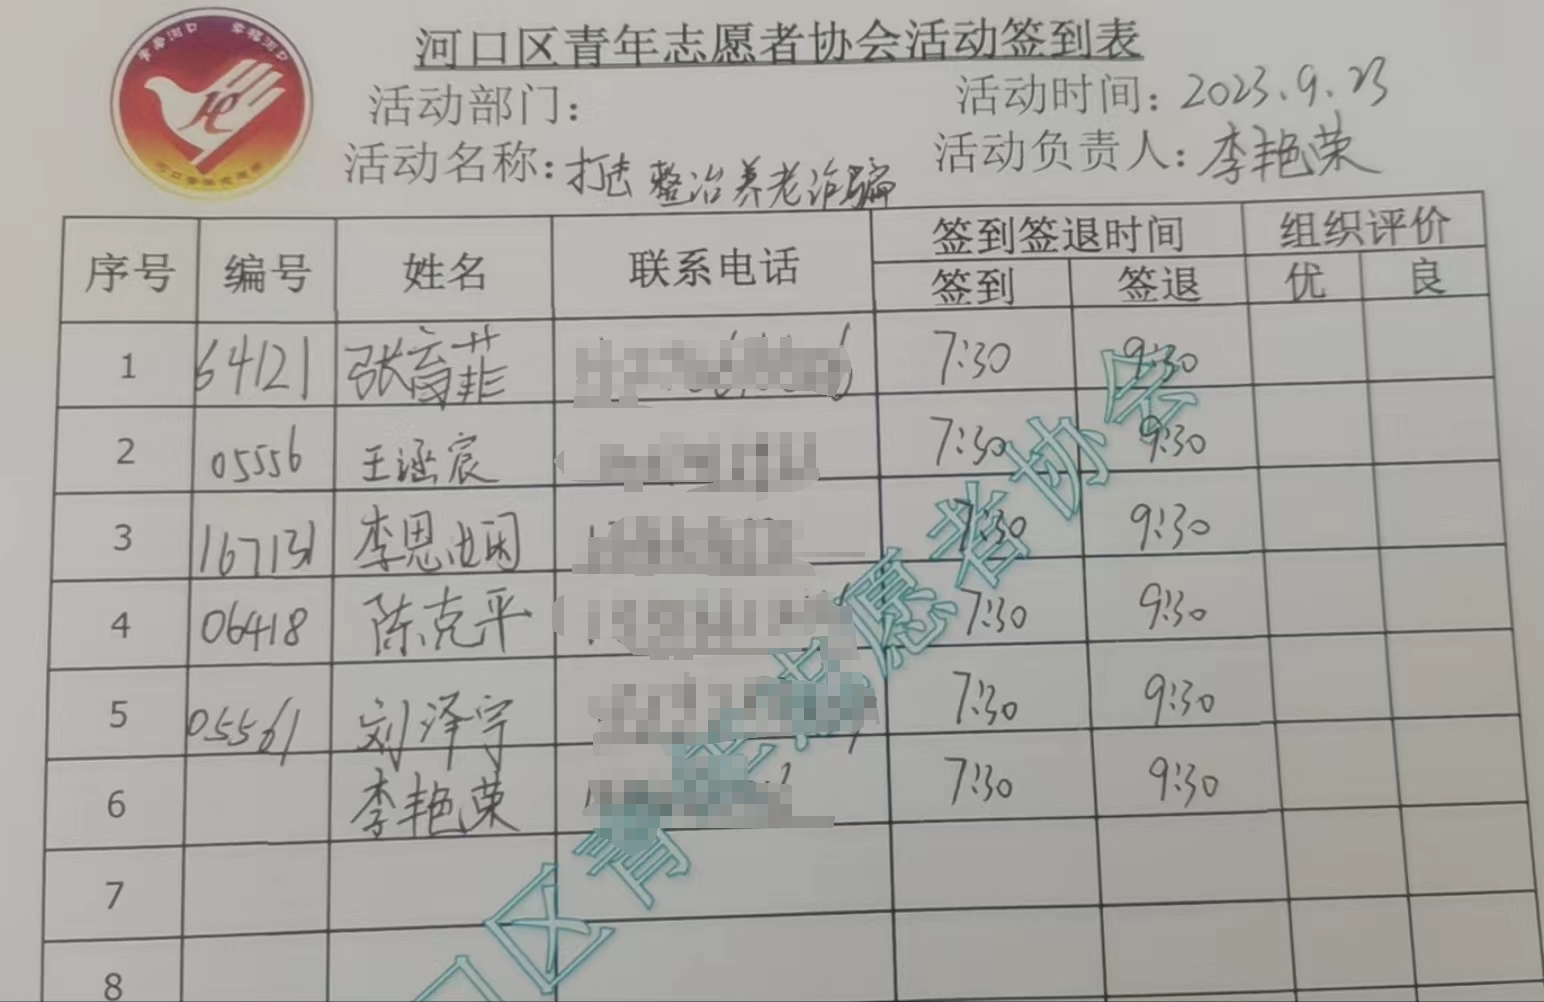 青春河口 幸福河口
河口区青年志愿者协会活动签到表
活动部门： 活动时间：2023.9.23
活动名称：打击整治养老诈骗 活动负责人：李艳荣
序号 编号 姓名 联系电话 签到签退时间 组织评价
签到 签退 优 良
1 64121 张育菲 7:30 9:30
2 05556 王涵宸 7:30 9:30
3 167131 李思娴 7:30 9:30
4 06418 陈克平 7:30 9:30
5 05561 刘泽宇 7:30 9:30
6 李艳荣 7:30 9:30
7
8
口区青年志愿者协会